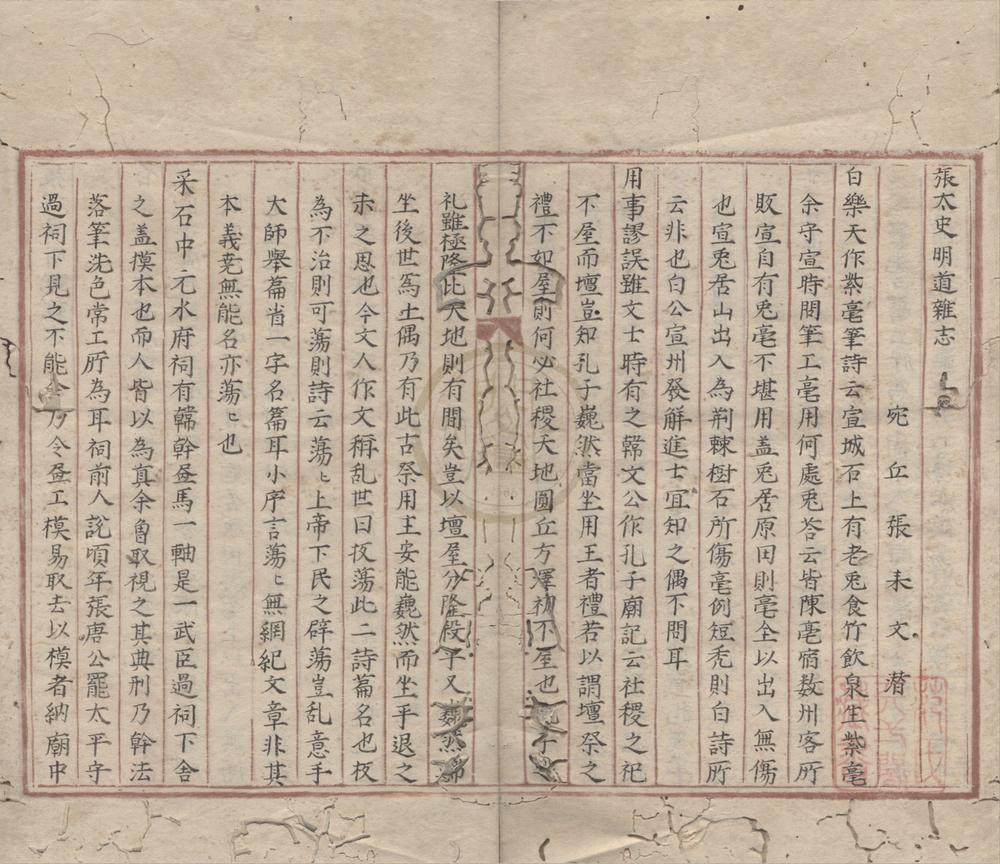 張太史明道雜志
宛丘張耒文潛
白樂天作紫毫筆詩云宣城石上有老兎食竹飲泉生紫毫
余守宣時問筆工毫用何處兎荅云皆陳亳宿数州客所
販宣自有兎毫不堪用盖兎居原田則毫全以出入無傷
也宣兎居山出入為荆棘樹石所傷毫例短秃則白詩所
云非也白公宣州發解進士宜知之偶不問耳
用事謬誤雖文士時有之韓文公作孔子廟記云社稷之祀
不屋而壇豈知孔子巍然當坐用王者禮若以謂壇祭之
禮不如屋則何必社稷天地圓丘方澤初不屋也孔子之
礼雖極隆比天地則有間矣豈以壇屋分隆殺乎又巍然
坐後世為土偶乃有此古祭用主安能巍然而坐乎退之
未之思也今文人作文稱乱世曰板蕩此二詩篇名也板
為不治則可蕩則詩云蕩〻上帝下民之辟蕩豈乱意乎
大師舉篇首一字名篇耳小序言蕩〻無綱紀文章非其
本義尭無能名亦蕩〻也
采石中元水府祠有韓幹畫馬一軸是一武臣過祠下舍
之盖模本也而人皆以為真余魯取視之其典刑乃幹法
落筆洗色常工所為耳祠前人說頃年張唐公罷太平守
過祠下見之不能舍乃令畫工模易取去以模者納廟中